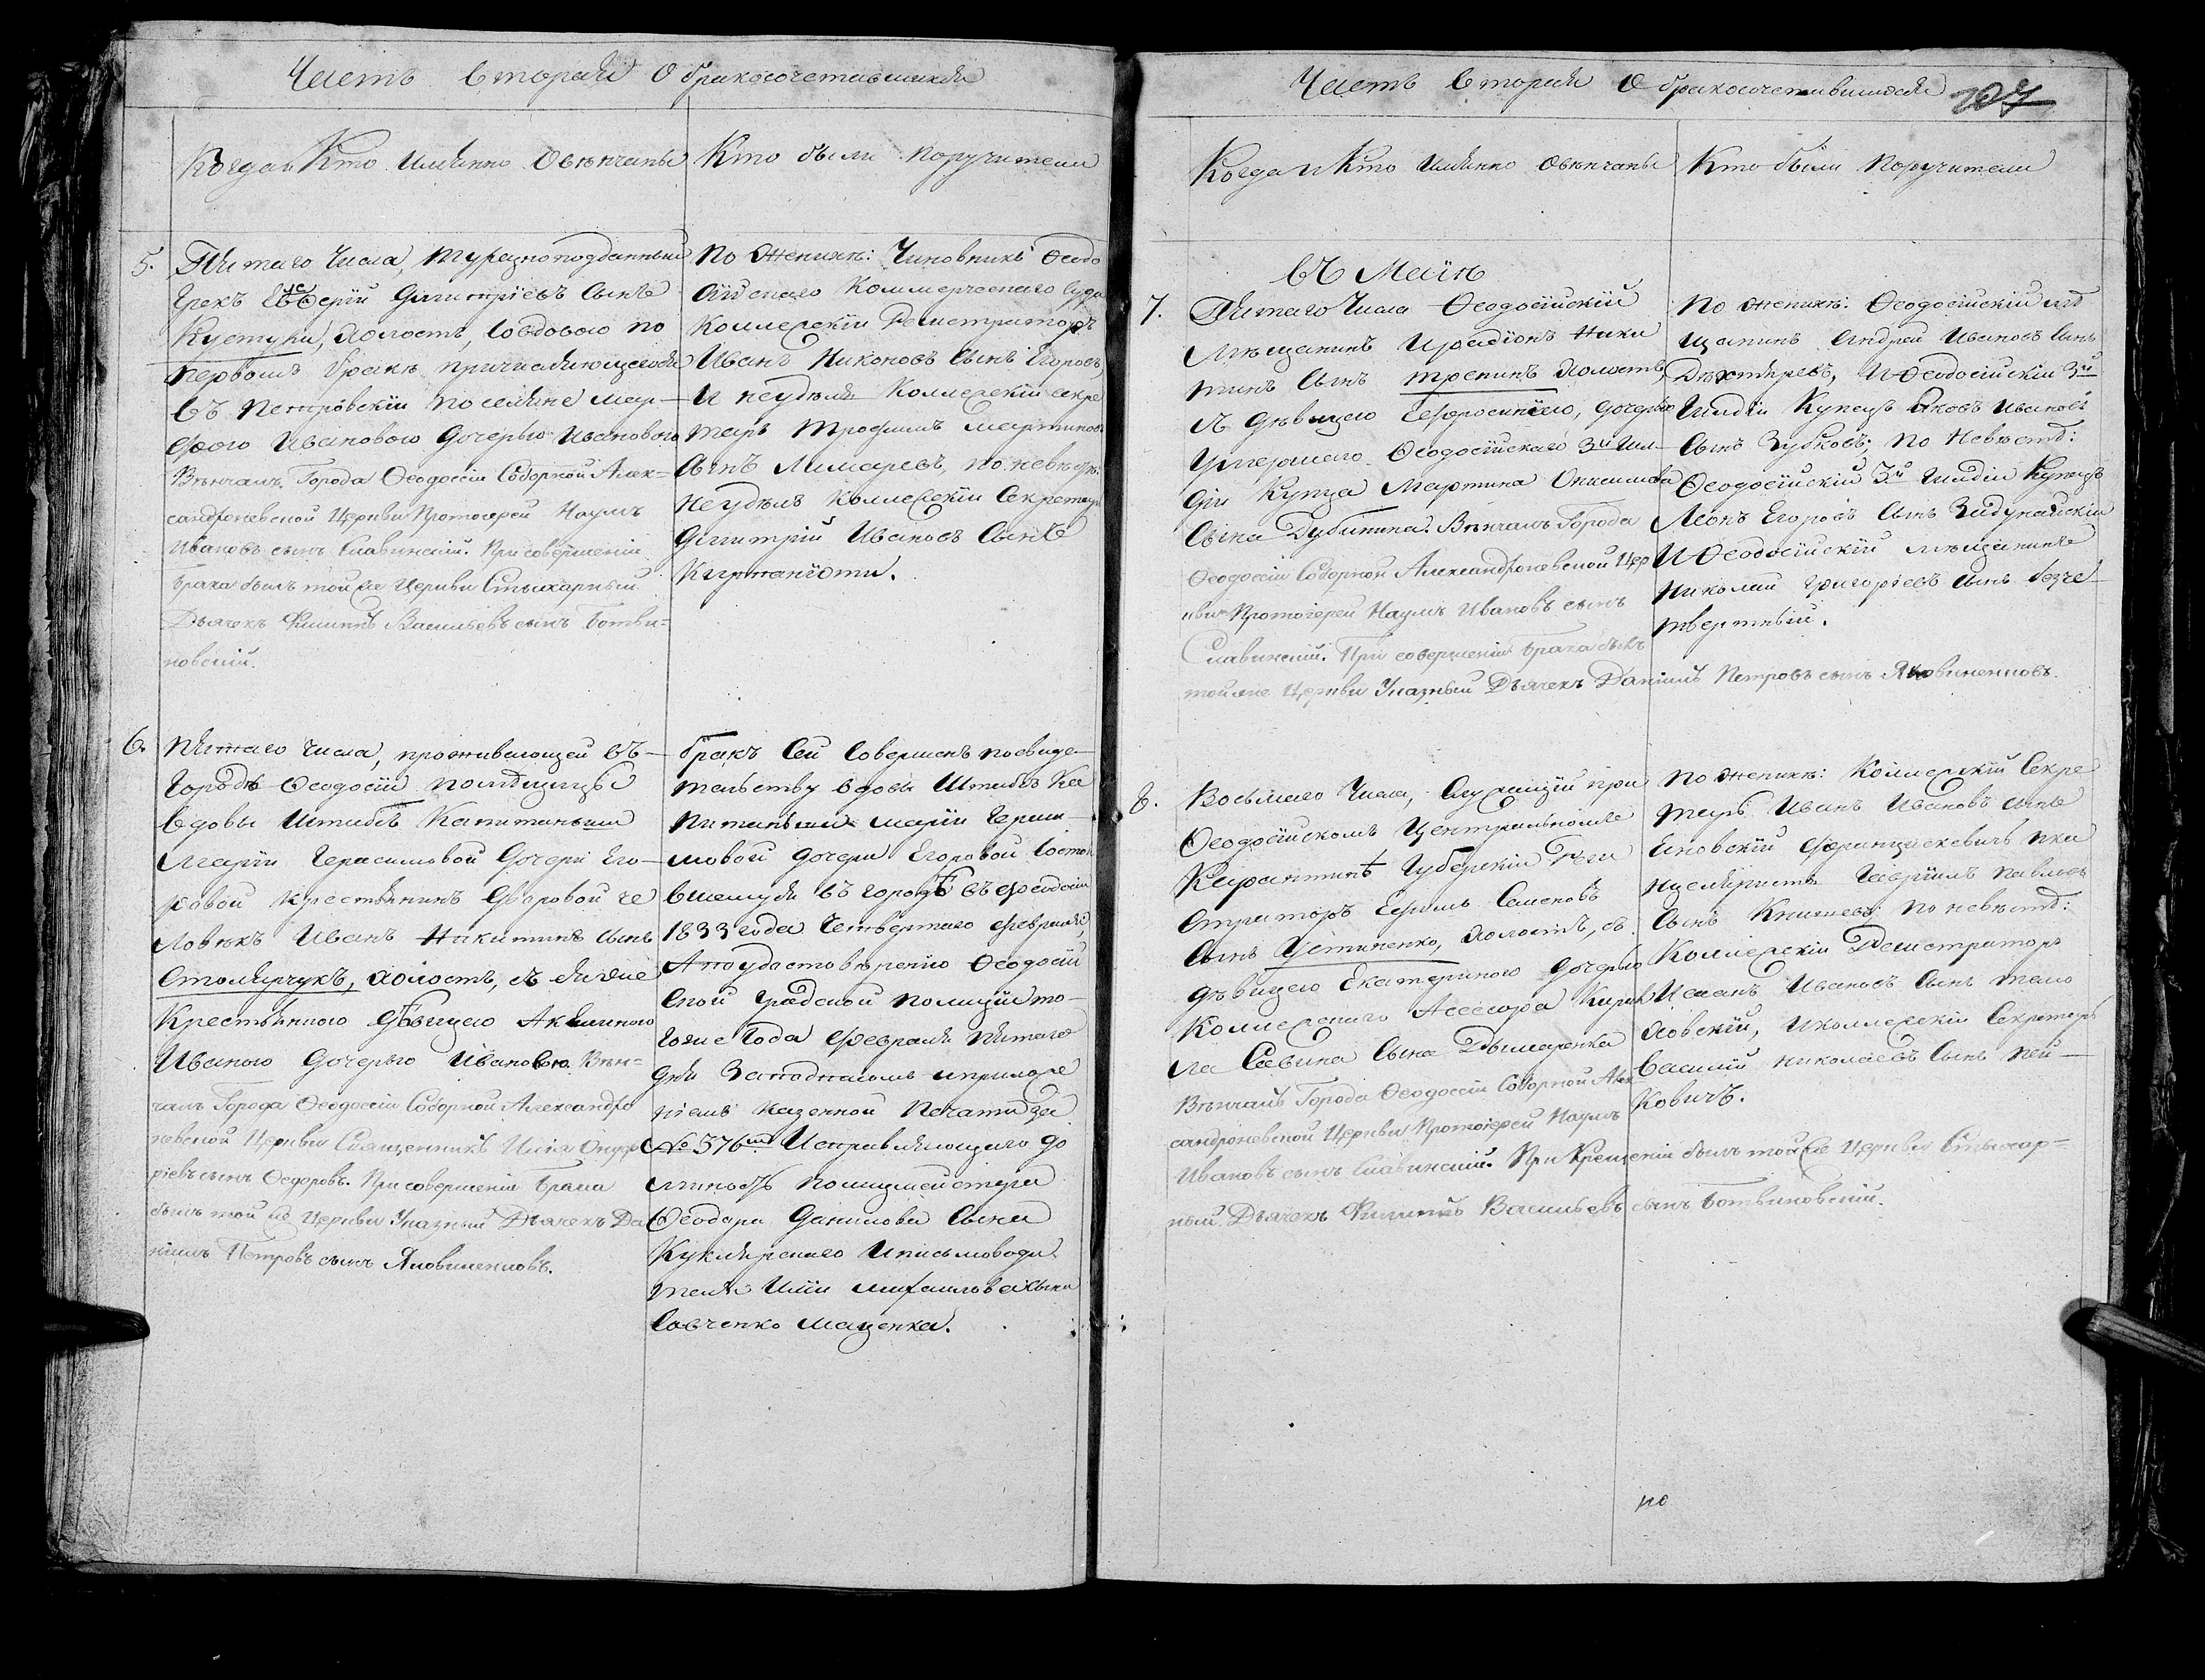 Часть вторая О бракосочетавшихся
Когда и Кто имянно овенчаны
Кто были поручители
5.
Пятаго Числа, турецкоподданный
Грекъ Елевферій Дмитріевъ Сынъ
Кустуки, холостъ, совдовою по
первомъ бракѣ причисляющеюся
въ Петровскій поселянке Мар-
фою Ивановою дочерью Ивановою
Вѣнчалъ Города Ѳеодоссіи Соборной Алек-
сандроневской Церкви Протоіерей Наумъ
Ивановъ сынъ Славинскій. При совершеніи
Брака былъ той же Церкви Стихарный
Дьячекъ Филиппъ Васильевъ сынъ Ботви-
новскій.
По Женихѣ: Чиновникъ Ѳеодо
сійскаго Коммерческаго Суда
Коллежскій Регистраторъ
Иванъ Никоновъ Сынъ Егоровъ,
И неудѣлъ Коллежскій секре
тарь Трофимъ Мартиновъ
Сынъ Лимаревъ, по невѣстѣ:
неудѣлъ Коллежскій Секретарь
Дмитрій Ивановъ Сынъ
6.
Пятаго Числа, проживающей въ
Городѣ Ѳеодосіи помѣщицы
вдовы Штабсъ Капитанши
Маріи Герасимовой дочери Его-
ровой крестьянинъ дворовой че
ловѣкъ Иванъ Никитинъ Сынъ
Столярчукъ, холостъ, съ ея же
Крестьянкою дѣвицею Акилиною
Ивановою дочерью Ивановою. Вѣн-
чалъ Города Ѳеодоссіи Соборной Александро
невской Церкви Священникъ Илія
ріевъ сынъ Ѳедоровъ. При совершеніи Брака
былъ той же Церкви Указный Дьячекъ Да
ніилъ Петровъ сынъ Яковиненковъ.
бракъ Сей Совершенъ посвиде
тельству вдовы Штабсъ Ка
питанши Маріи Гераси
мовой дочери Егоровой Состо
вшемуся въ городѣ въ Феодосіи
1833 года Четвертаго февраля,
А по удостовѣренію Ѳеодосій
ской градской полиціи то-
го же Года Февраля Пятаго
дня Заподписомъ и приложе
ніемъ казенной Печати за
№ 576мъ Исправляющаго до
лжность полицмейстера
Ѳеодора Данилова Сына
Куклярскаго И письмоводи
теля Иліи Михаилова сына
Савченко Маценка.
Часть вторая О бракосочетавшихся
207
Когда и Кто имянно овенчаны
Кто были поручители
въ Маіи
7.
Пятаго Числа Ѳеодосійскій
мѣщанинъ Иродіонъ Ники
тинъ Сынъ Трепинъ холостъ,
съ дѣвицею Ефросиніею, дочерью
умершаго Ѳеодосійскаго 3й Гил-
діи Купца Мартина Онисимова
Сына Дубинина. Вѣнчалъ Города
Ѳеодоссіи Соборной Александроневской Цер
кви Протоіерей Наумъ Ивановъ сынъ
Славинскій. При совершеніи Брака былъ
той же Церкви Указный Дьячекъ Даніилъ Петровъ сынъ Яковиненковъ.
По женихѣ: Ѳеодосійскій мѣ
щанинъ Андрей Ивановъ Сынъ
Дѣхтяревъ, И Ѳеодосійскій 3й
Гилдіи Купецъ Яковъ Ивановъ
Сынъ Зубковъ; по Невѣстѣ:
Ѳеодосійскій 3й Гилдіи Купецъ
Леонъ Егоровъ Сынъ Задунайскій
И Ѳеодосійскій мѣщанинъ
Николай Григорьевъ Сынъ безче
твертный.
8.
Восьмаго Числа, Служащій при
Ѳеодосійскомъ Центральномъ
Карантинѣ Губерскій Реги
страторъ Ефимъ Семеновъ
Сынъ Устименко, холостъ, съ
дѣвицею Екатериною дочерью
Коллежскаго Асессора Кирил
ла Саввина Сына Дымаренка
Вѣнчалъ Города Ѳеодоссіи Соборной Алек
сандроневской Церкви Протоіерей Наумъ
Ивановъ сынъ Славинскій. При Крещеніи былъ той же Церкви Стихар-
ный Дьячекъ Филиппъ Васильевъ сынъ Ботвиновскій.
По женихѣ: Коллежскій Секре
тарь Иванъ Ивановъ сынъ
Яновскій Францискевичъ и ка
нцеляристъ Гавріилъ Павловъ
Сынъ Книшевъ; по невѣстѣ:
Коллежскій Регистраторъ
Иванъ Ивановъ Сынъ Мало
ховскій, И коллежскій Секретарь
Василій Николаевъ Сынъ Пей-
ковичъ.
по